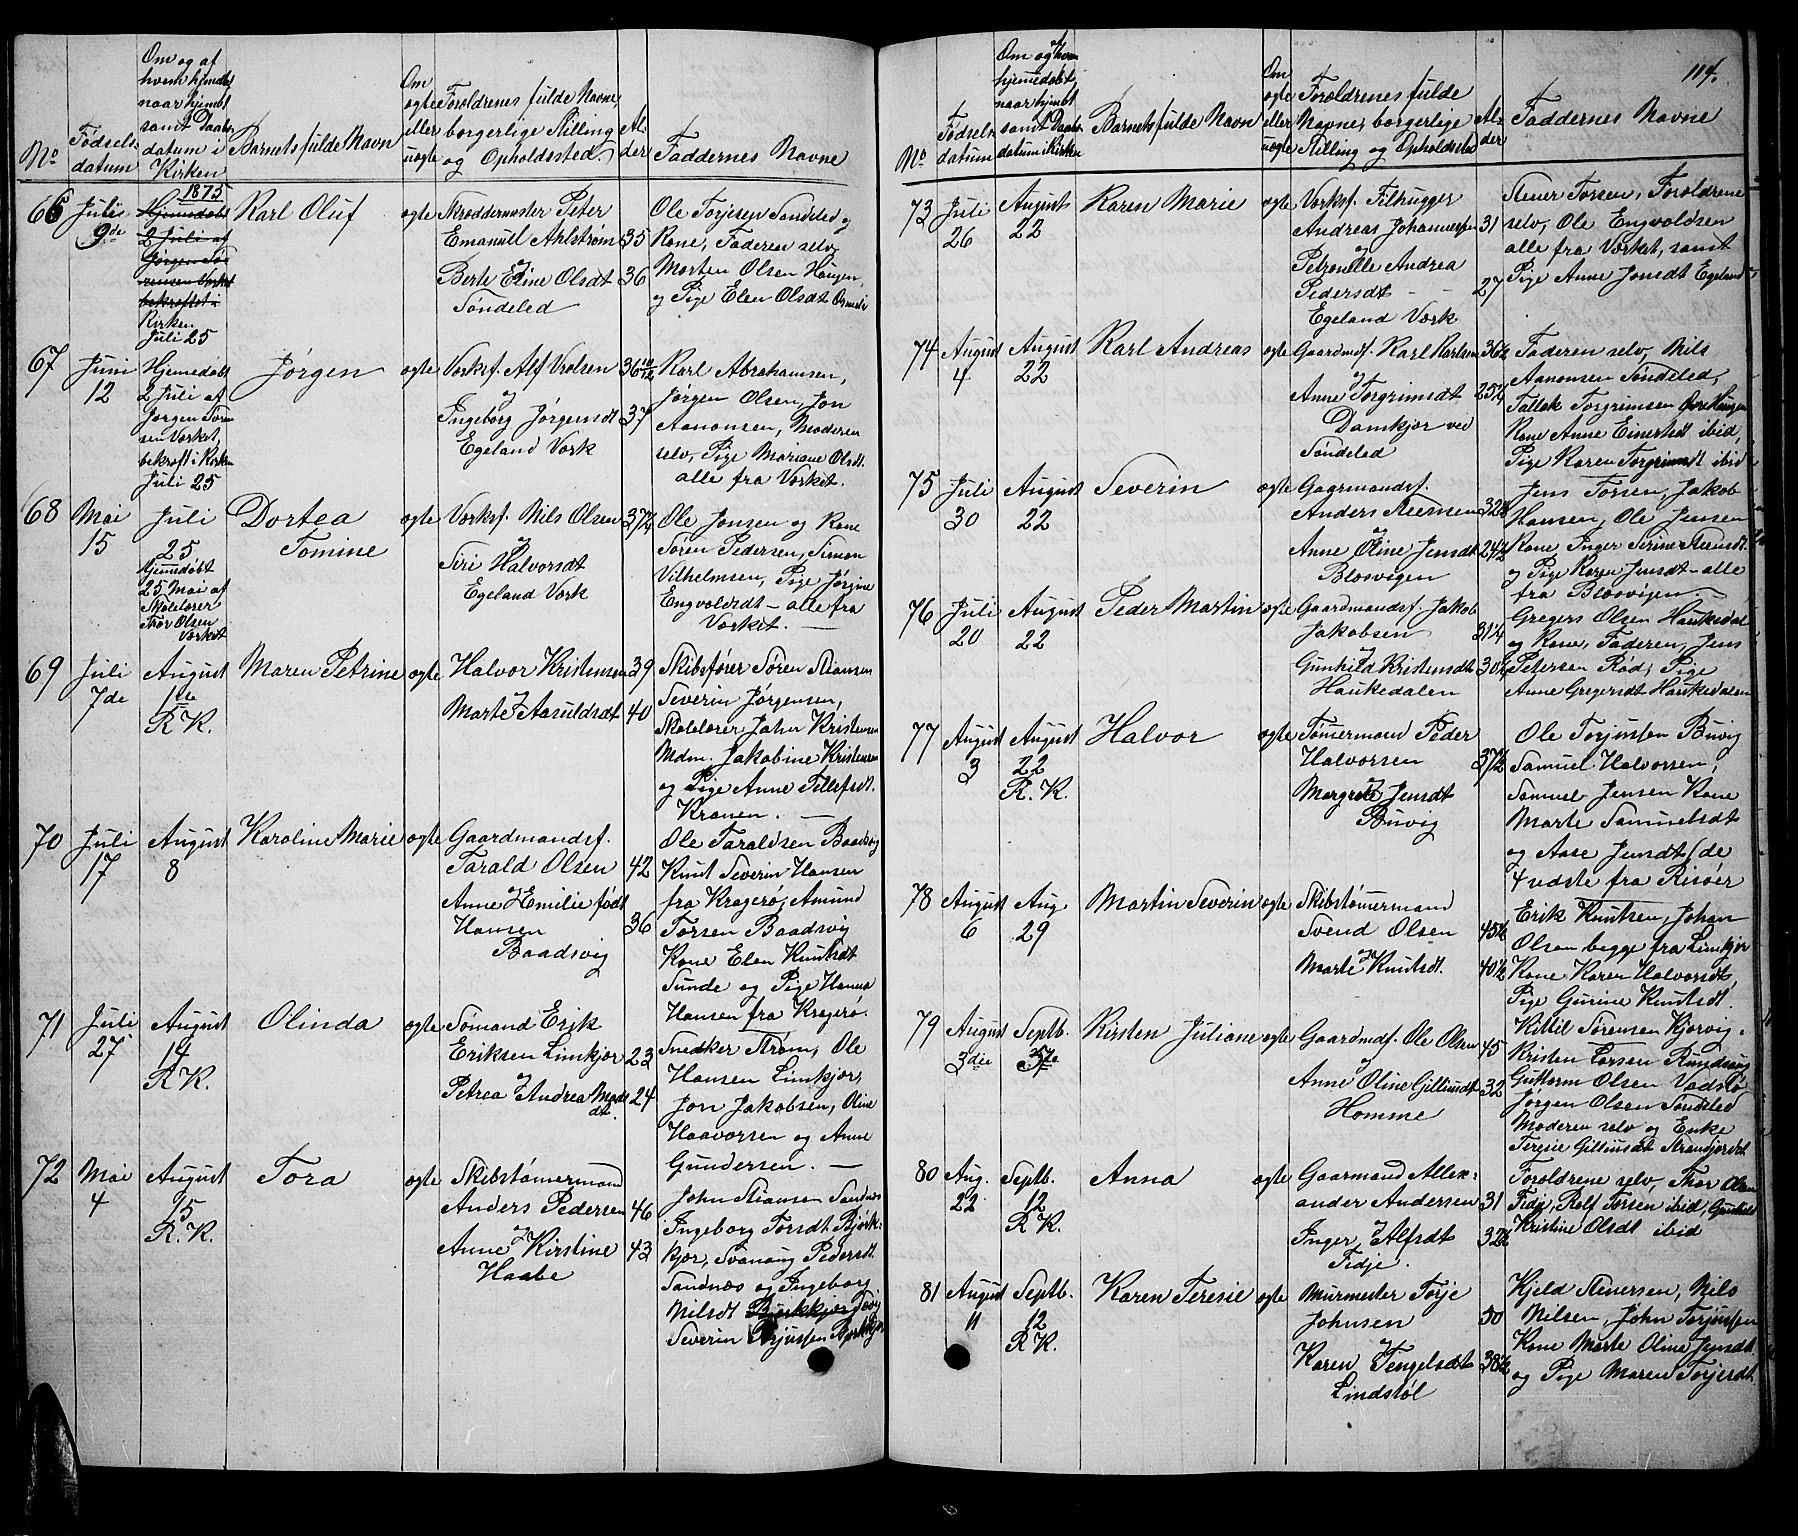 No
Fødsels-
datum
Om og af
hvem hjemdøbt
naar hjembt
samt Daabs-
datum i
Kirken
Barnets fulde Navn
Om
ægte
eller
uægte
Forældrenes fulde Navne,
borgerlige Stilling
og Opholdssted.
Al-
der
Faddernes Navne
66
Juli
9de
1875
Hjemmedøbt
2 Juli af
Jørgen Sø-
rensen Værket
bekræftet i
Kirken
Juli 25
Karl Oluf
ægte
Skræddermester Peter
Emanuel Ahlstrøm 35
og
Berte Eline Olsdt 36
Søndeled
Ole Torjusen Søndeled og
Kone, Faderen selv,
Morten Olsen Haugen,
og Pige Elen Olsdt
67
Juni
12
Hjemmedøbt
2 Juli af
Jørgen Søren
sen Værket,
bekræft i Kirken
Juli 25
Jørgen
ægte
Værksf. Alf Vrolsen 36 10/12
og
Ingeborg Jørgensdt 37
Egeland Værk
Karl Abrahamsen,
Jørgen Olsen, Jon
Aanonsen, Moderen
selv, Pige Mariane Olsdt
alle fra Værket.
68
Mai
15
Juli
25
Hjemmedøbt
25 Mai af
Skolelærer
Thor Olsen
Værket
Dortea
Tomine
ægte
Værksf. Nils Olsen 37½
og
Siri Halvorsdt
Egeland Værk
Ole Jensen og Kone
Søren Pedersen, Simon
Vilhelmsen, Pige Jørgine
Engvoldsdt — alle fra
Værket. —
69
Juli
7de
August
1ste
R.K.
Maren Petrine
ægte
Halvor Kristensen 39
og
Marte Aasuldsdt 40
Skibsfører Søren Stiansen
Severin Jørgensen,
Skolelærer John Kristensen
Mdm. Jakobine Kristensen
og Pige Anne Tellefsdt.
Kranen. —
70
Juli
17
August
8
Karoline Marie
ægte
Gaardmandsf.
Tarald Olsen 42
og
Anne Emilie født
Hansen 36
Baadsvig
Ole Taraldsen Baadsvig
Knut Severin Hansen
fra Kragerø, Amund
Torsen Baadsvig
Kone Elen Knutsdt
Sunde og Pige Hanna
Hansen fra Kragerø.
71
Juli
27
August
14
R.K.
Olinda
ægte
Sømand Erik
Eriksen Limkjær 23
og
Petrea Andrea Mads
dt. 24
Snedker Strøm, Ole
Hansen Limkjær,
Jon Jakobsen, Oline
Haavorsen og Anne
Gundersen. —
72
Mai
4
August
15
R.K.
Tora
ægte
Skibstømmermand
Anders Pedersen 46
og
Anne Kirstine 43
Haabe
John Stiansen Sandnæs
Ingeborg Torsdt. Bjørk-
kjær, Svanaug Pedersdt.
Sandnæs og Ingeborg
Nilsdt Bjørkkjær
Severin Torjussen
114.
No
Fødsels-
datum
Om og af hvem
hjemmedøbt,
naar hjmbt
samt Daabs-
datum i Kirken
Barnets fulde Navn
Om
ægte
eller
uægte
Forældrenes fulde
Navne, borgerlige
Stilling og Opholdssted
Al-
der
Faddernes Navne
73
Juli
26
August
22
Karen Marie
ægte
Værksf. Filhugger
Andreas Johannessen 31
og
Petronelle Andrea
Pedersdt — — 27
Egeland Værk
Stener Torsen, Forældrene
selv, Ole Engvoldsen
alle fra Værket, samt
Pige Anne Jonsdt Egeland
74
August
4
August
22
Karl Andreas
ægte
Gaardmdsf. Karl Karlsen 36½
og
Anne Torgrimsdt 25½
Damkjær ved
Søndeled
Faderen selv, Nils
Aanonsen Søndeled,
Tallak Torgrimsen Øvre Haugen
Kone Anne Einersdt ibid,
Pige Karen Torgrimsdt ibid
75
Juli
30
August
22
Severin
ægte
Gaarmandsf.
Anders Steensen 32½
og
Anne Oline Jensdt 24½
Blosvigen
Jens Torsen, Jakob
Hansen, Ole Jensen
Kone Inger Serine Steensdt.
og Pige Karen Jensdt — alle
fra Blosvigen. —
76
Juli
20
August
22
Peder Martin
ægte
Gaardmandsf. Jakob
Jakobsen 31¼
og
Gunhild Kristensdt 30½
Haukedalen
Gregers Olsen Haukedal
og Kone, Faderen, Jens
Petersen Rød, Pige
Anne Gregersdt Haukedalen
77
August
3
August
22
R.K.
Halvor
ægte
Tømermand Peder
Halvorsen 37½
og
Margrete Jensdt
Buvig
Ole Torjussen Buvig
Samuel Halvorsen,
Samuel Jensen Kone
Marte Samuelsdt
og Aase Jensdt (de
4 sidste fra Risøer
78
August
6
Aug.
29
Martin Severin
ægte
Skibstømermand
Svend Olsen 45½
og
Marte Knutsdt. 40½
Erik Knutsen, Johan
Olsen begge fra Limkjær
Kone Karen Halvorsdt,
Pige Gurine Knutsdt.
79
August
3die
Septb.
5te
Kirsten Juliane
ægte
Gaardmdsf. Ole Olsen 45
og
Anne Oline Gilliusdt 32
Homme
Kittil Sørensen Kjørvig.
Kristen Larsen
Guttorm Olsen
Jørgen Olsen Søndeled
Moderen selv og Enke
Terese Gilliusdt
80
Aug.
22
Septb.
12
R.K.
Anna
ægte
Gaarmand Allex-
ander Andersen 31
og
Inger Alfsdt 32½
Fidje.
Forældrene selv, Thor Olsen
Fidje, Rolf Torsen ibid, Gunhild
Kristine Olsdt ibid
81
August
11
Septb.
12
R.K.
Karen Teresie
ægte
Murmester Torje
Johnsen 50
Karen Tengelsdt 38½
Lindstøl
Kjeld Stenersen, Nils
Nilsen, John Torjussen
Kone Marte Oline Jensdt
og Pige Maren Torjersdt.